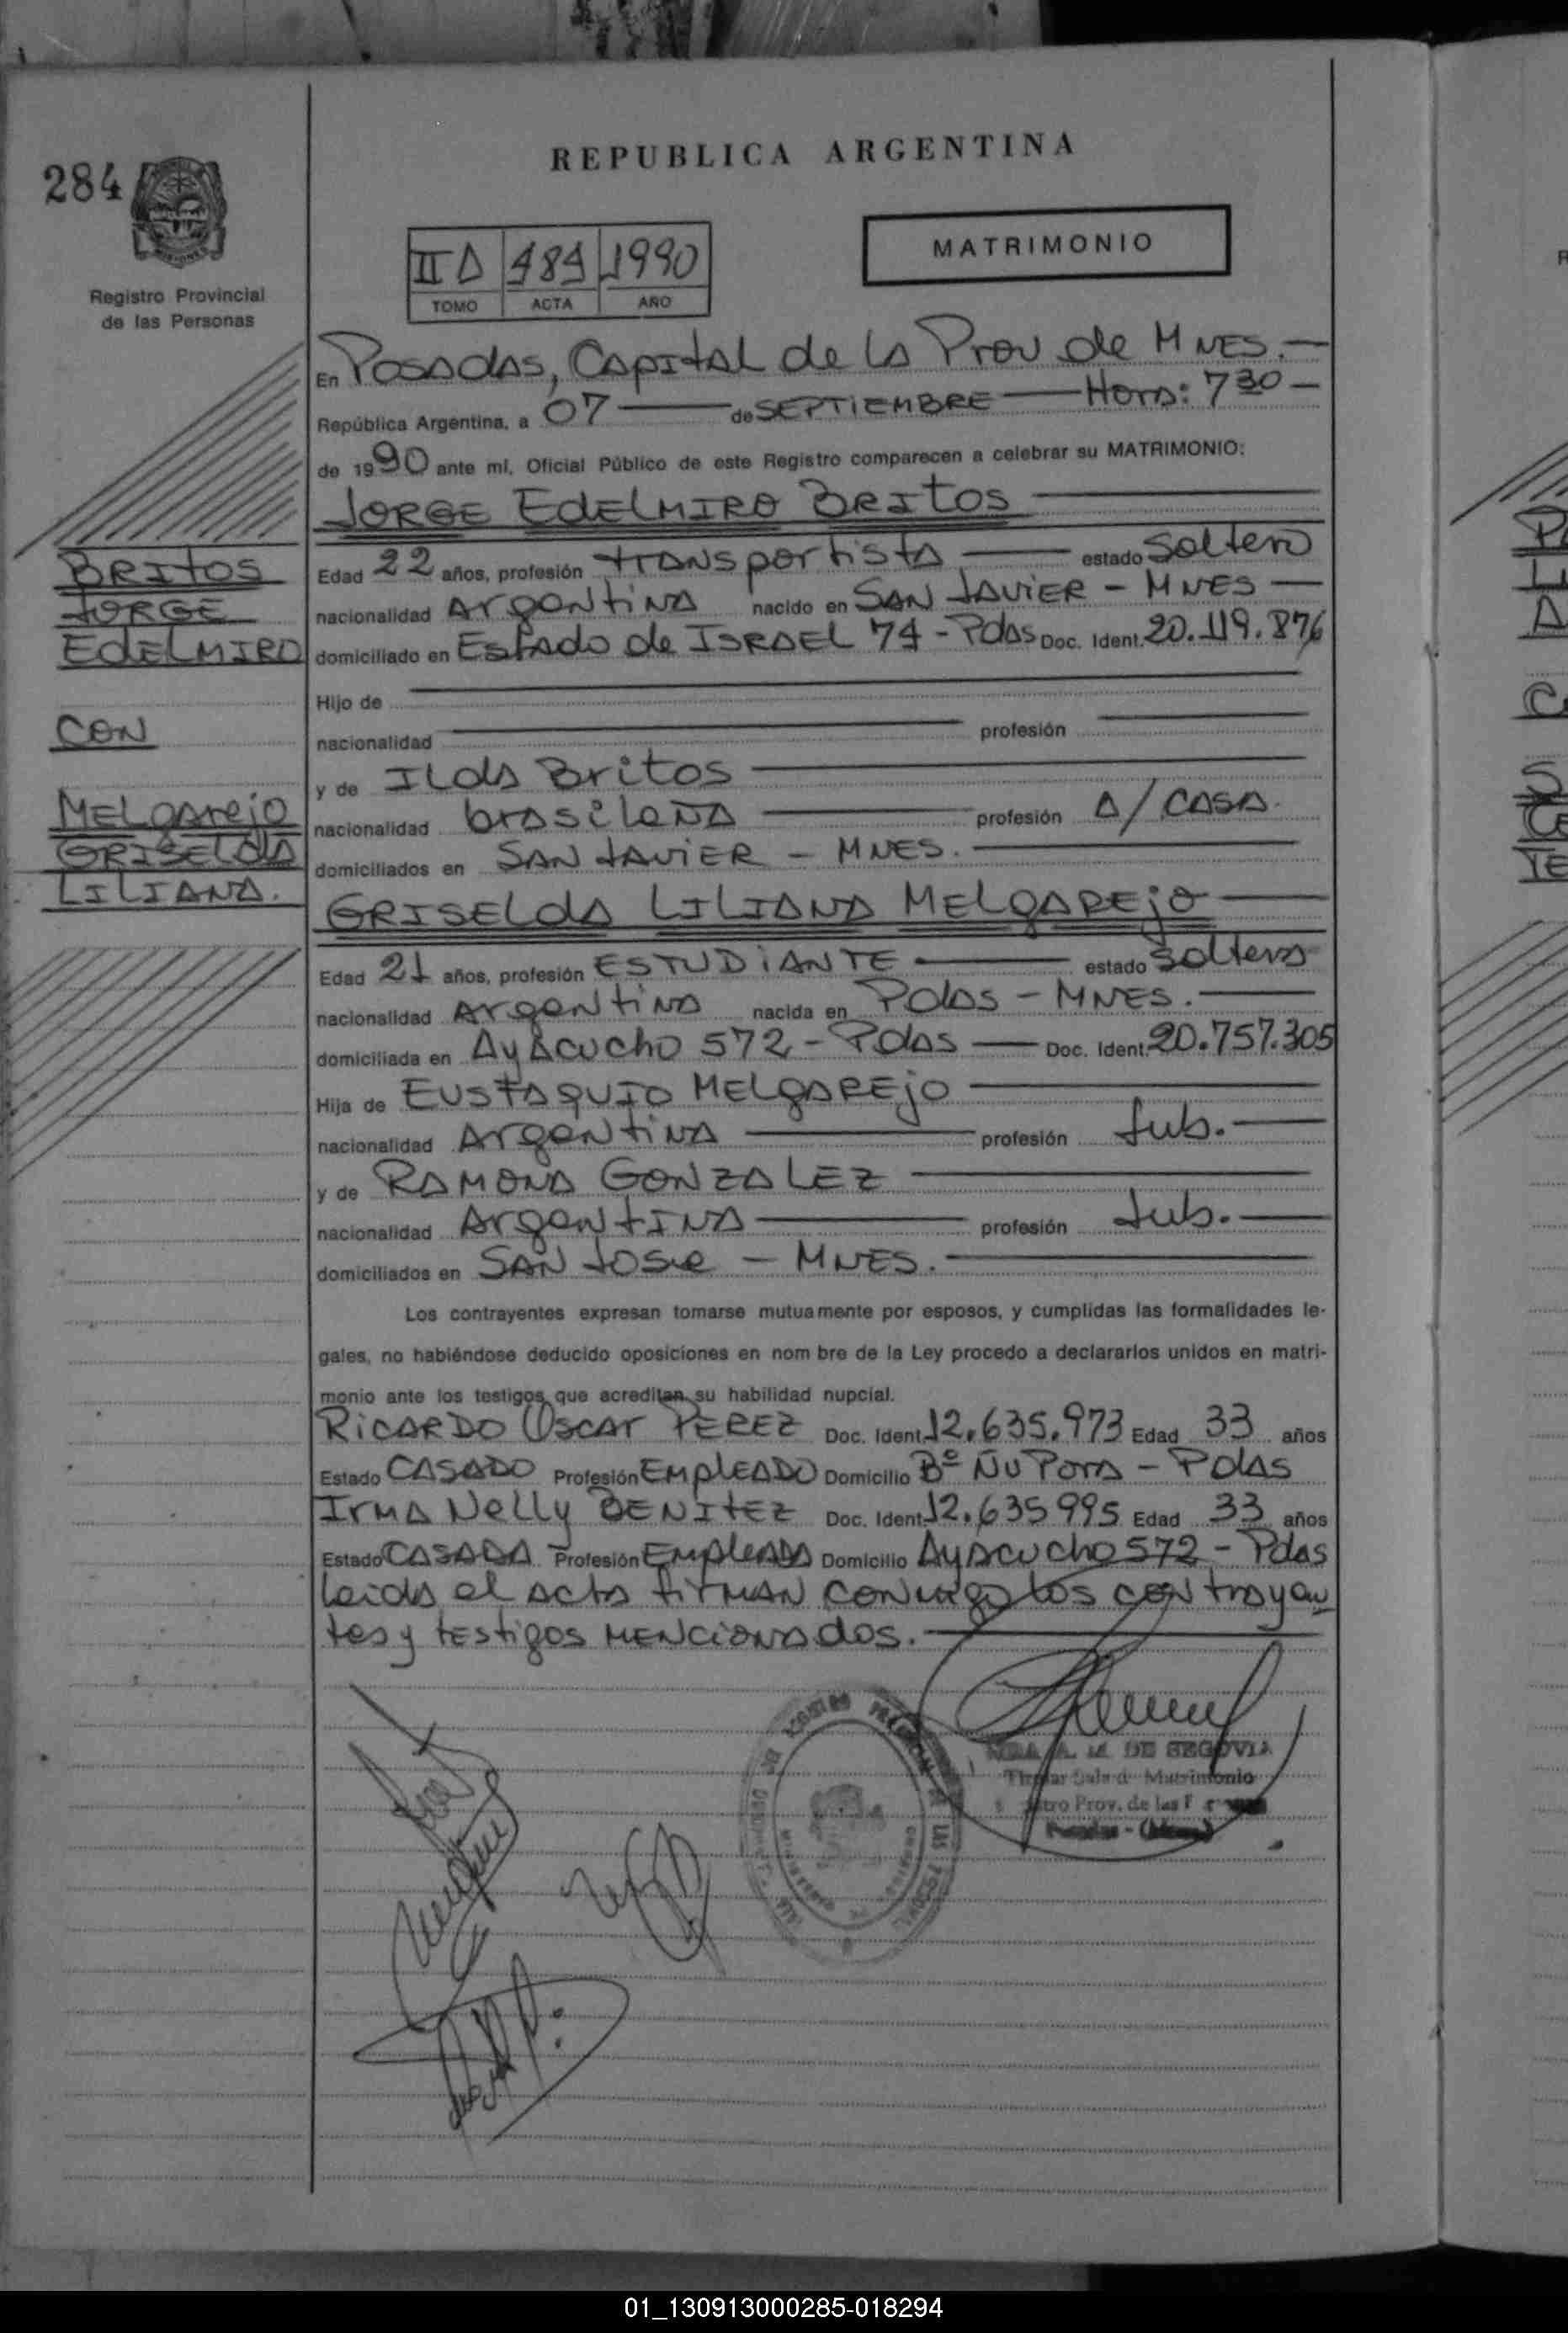 284
REPUBLICA ARGENTINA
Registro Provincial
de las Personas
II D 484 1990
TOMO ACTA AÑO
MATRIMONIO
En Posadas, Capital de la Prov de Mnes.
República Argentina, a 07 de SEPTIEMBRE Hora: 7 30
de 1990 ante mí, Oficial Público de este Registro comparecen a celebrar su MATRIMONIO:
JORGE EdELMIRO BRITOS
Edad 22 años, profesión transportista estado Soltero
nacionalidad Argentina nacido en SAN JAVIER - MNES
domiciliado en Estado de ISRAEL 74 - Pdas Doc. Ident. 20.119.876
Hijo de
nacionalidad profesión
y de Ilda Britos
nacionalidad brasileña profesión A/CASA.
domiciliados en SAN JAVIER - MNES.
GRISELdA LILIANA MELGAREJO
Edad 21 años, profesión ESTUDIANTE estado Soltera
nacionalidad Argentina nacida en Pdas - MNES.
domiciliada en Ayacucho 572 - Pdas Doc. Ident. 20.757.305
Hija de EUSTAQUIO MELGAREJO
nacionalidad Argentina profesión Jub.
y de RAMONA GONZALEZ
nacionalidad Argentina profesión Jub.
domiciliados en SAN JOSE - MNES.
Los contrayentes expresan tomarse mutuamente por esposos, y cumplidas las formalidades le-
gales, no habiéndose deducido oposiciones en nom bre de la Ley procedo a declararlos unidos en matri-
monio ante los testigos que acreditan su habilidad nupcial.
RICARDO Oscar PEREZ Doc. Ident. 12.635.973 Edad 33 años
Estado CASADO Profesión EMPLEADO Domicilio Bº Ñu Pora - Pdas
Irma Nelly BENITEZ Doc. Ident. 12.635995 Edad 33 años
Estado CASADA Profesión Empleada Domicilio Ayacucho 572 - Pdas
Leida el acta firman conmigo los contrayen
tes y testigos mencionados.
BRITOS
JORGE
EdELMIRO
CON
MELgArejo
GRISELdA
LILIANA.
A. M. DE SEGOVIA
Titular Sala d Matrimonio
Prov. de las
01_130913000285-018294